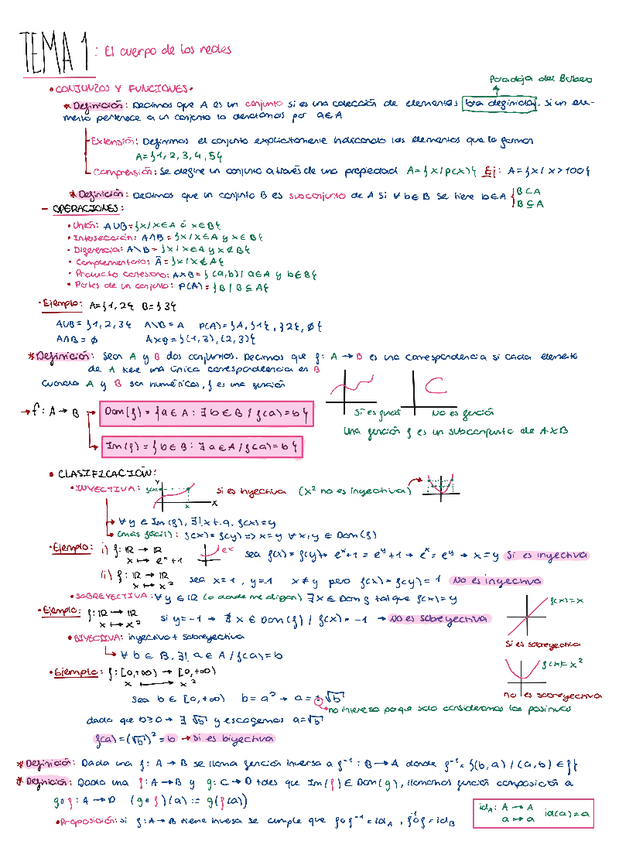 TEMA 1: El cuerpo de los reales
Paradoja del Barbero
• CONJUNTOS Y FUNCIONES •
* Definición: Decimos que A es un conjunto si es una colección de elementos bra definidos. si un ele-
mento pertenece a un conjunto lo denotamos por a∈A
Extensión: Definimos el conjunto explícitamente indicando los elementos que lo forman
A={1,2,3,4,5}
Comprensión: Se define un conjunto a través de una propiedad A={x/p(x)} Ej: A={x/x>100}
* Definición: Decimos que un conjunto B es subconjunto de A si ∀b∈B se tiene b∈A { B⊂A
B⊆A
- OPERACIONES:
• Unión: A∪B={x/x∈A ó x∈B}
• Intersección: A∩B={x/x∈A y x∈B}
• Diferencia: A\B={x/x∈A y x∉B}
• Complementario: Ā={x/x∉A}
• Producto cartesiano: A×B={(a,b)/a∈A y b∈B}
• Partes de un conjunto: P(A)={B/B⊆A}
• Ejemplo: A={1,2} B={3}
A∪B={1,2,3} A\B=A P(A)={A,{1},{2},∅}
A∩B=∅ A×B={(1,3),(2,3)}
* Definición: Sean A y B dos conjuntos. Decimos que f: A→B es una correspondencia si cada elemento
de A tiene una única correspondencia en B
Cuando A y B son numéricos, f es una función
Si es función No es función
Una función f es un subconjunto de A×B
→ f: A→B Dom(f)={a∈A: ∃b∈B/f(a)=b}
Im(f)={b∈B: ∃a∈A/f(a)=b}
• CLASIFICACIÓN:
• INYECTIVA: Y X Si es inyectiva (x² no es inyectiva)
∀y∈Im(f), ∃!x t.q. f(x)=y
(más fácil): f(x)=f(y) => x=y ∀x,y∈Dom(f)
• Ejemplo: i) f: ℝ→ℝ eˣ sea f(x)=f(y)→ eˣ+1=eʸ+1 → eˣ=eʸ → x=y Si es inyectiva
x↦eˣ+1
ii) f: ℝ→ℝ sea x=1, y=-1 x≠y pero f(x)=f(y)=1 No es inyectiva
x↦x²
• SOBREYECTIVA: ∀y∈ℝ (o donde me digan) ∃x∈Dom f tal que f(x)=y
• Ejemplo: f: ℝ→ℝ si y=-1 → ∄x∈Dom(f)/f(x)=-1 → No es sobreyectiva
x↦x²
f(x)=x
Si es sobreyectiva
• BIYECTIVA: inyectiva + sobreyectiva
∀b∈B, ∃!a∈A/f(a)=b
f(x)=x²
no es sobreyectiva
• Ejemplo: f: [0,+∞)→[0,+∞)
x↦x²
Sea b∈[0,+∞) b=a² → a=±√b
no interesa porque solo consideramos los positivos
dado que b≥0 → ∃√b y escogemos a=√b
f(a)=(√b)²=b → Si es biyectiva
* Definición: Dada una f: A→B se llama función inversa a f⁻¹: B→A donde f⁻¹={(b,a)/(a,b)∈f}
* Definición: Dada una f: A→B y g: C→D tales que Im(f)∈Dom(g), llamamos función composición a
g∘f: A→D (g∘f)(a):=g(f(a))
id_A: A→A id(a)=a
a↦a
• Proposición: si f: A→B tiene inversa se cumple que f∘f⁻¹=id_A, f⁻¹∘f=id_B